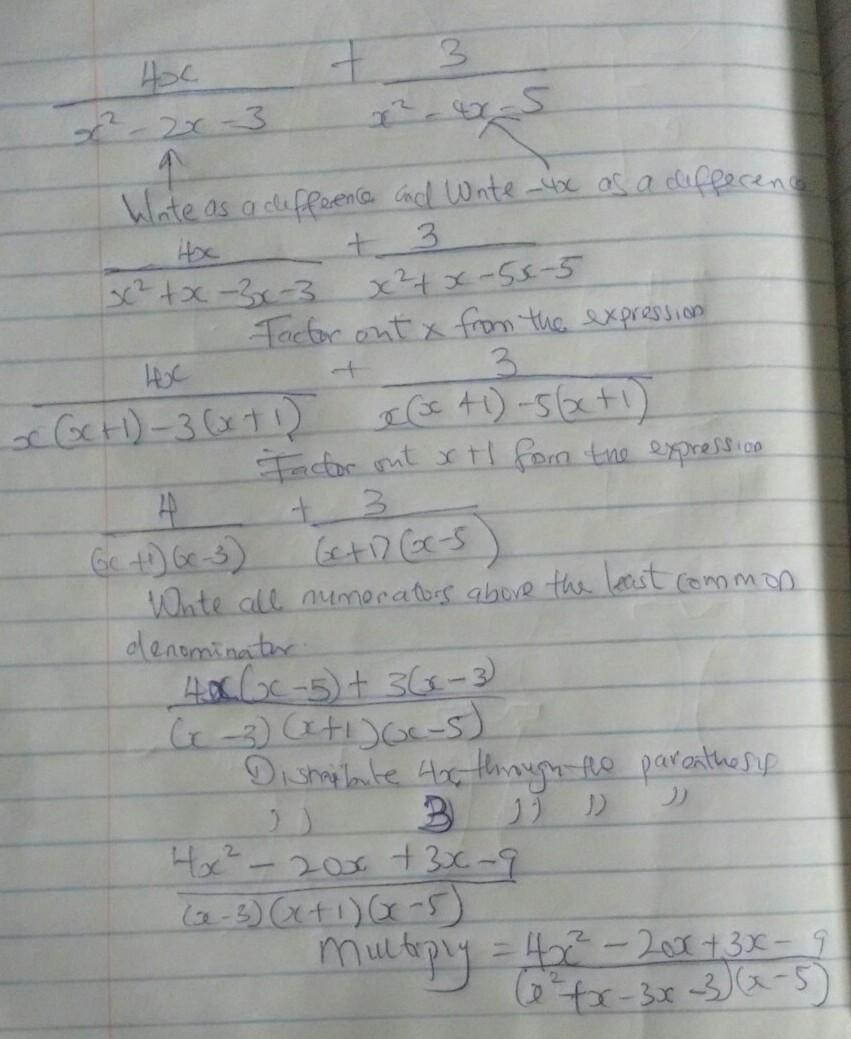 4x + 3
x² - 2x - 3 x² - 4x - 5
Write as a difference and Write -4x as a difference
4x + 3
x² + x - 3x - 3 x² + x - 5x - 5
Factor out x from the expression
4x + 3
x(x+1) - 3(x+1) x(x+1) - 5(x+1)
Factor out x+1 from the expression
4 + 3
(x+1)(x-3) (x+1)(x-5)
Write all numerators above the least common
denominator.
4x(x-5) + 3(x-3)
(x-3)(x+1)(x-5)
Distribute 4x through the parenthesis
,, 3 ,, ,, ,,
4x² - 20x + 3x - 9
(x-3)(x+1)(x-5)
Multiply = 4x² - 20x + 3x - 9
(x² + x - 3x - 3)(x-5)